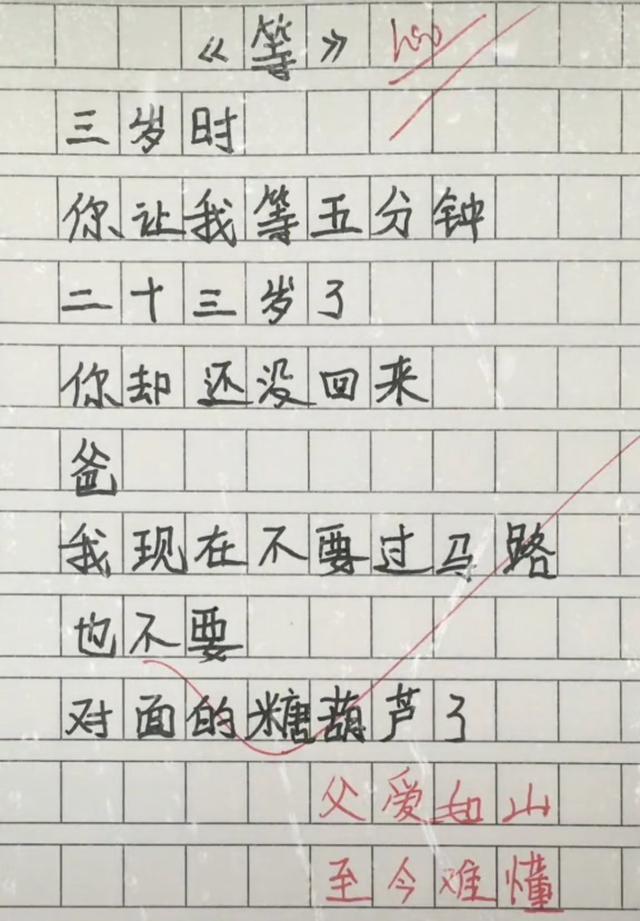 《等》 100
三岁时
你让我等五分钟
二十三岁了
你却还没回来
爸
我现在不要过马路
也不要
对面的糖葫芦了
父爱如山
至今难懂